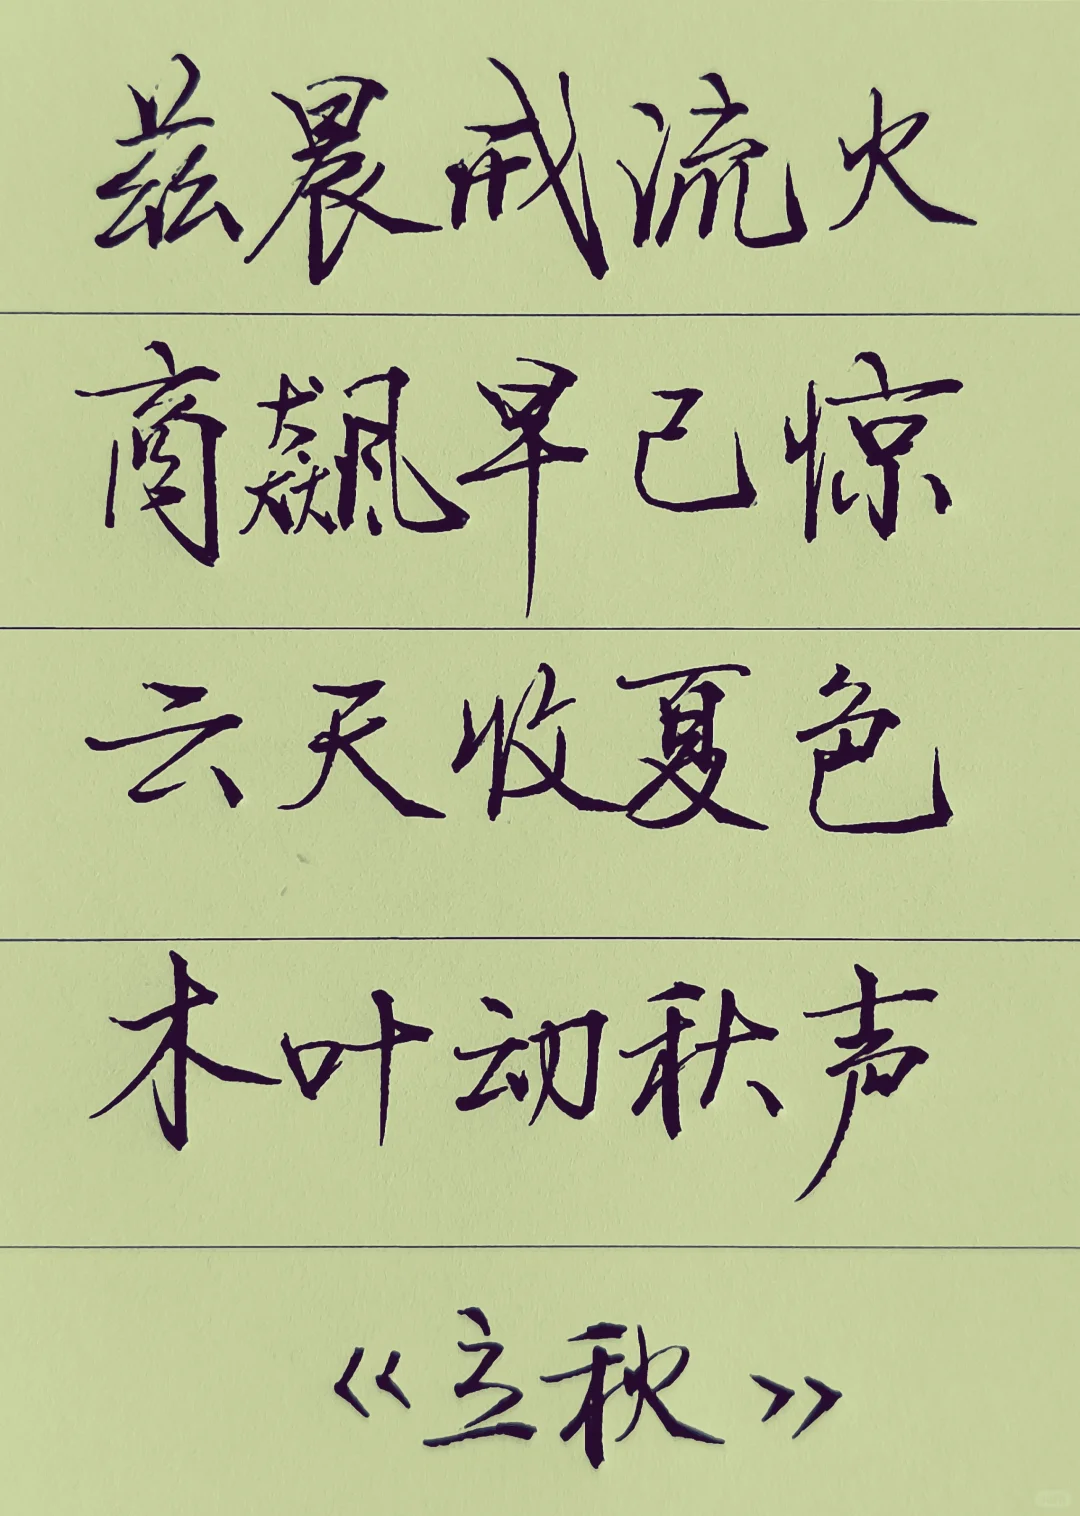 兹晨戒流火
商飙早已惊
云天收夏色
木叶动秋声
《立秋》